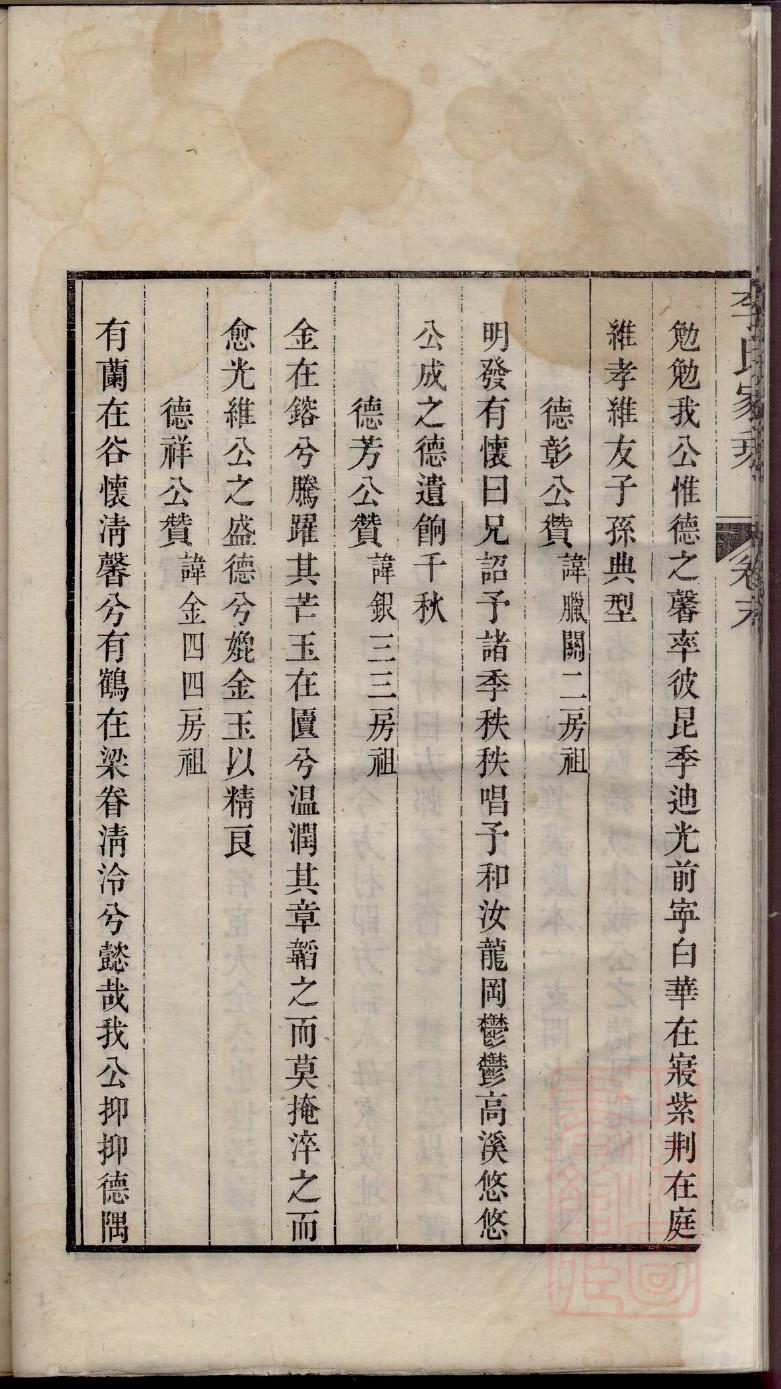 李氏家乘 卷末
勉勉我公惟德之馨率彼昆季迪光前寧白華在寢紫荆在庭
維孝維友子孫典型
德彰公贊 諱臘關二房祖
明發有懷曰兄詔予諸季秩秩唱予和汝龍岡鬱鬱高溪悠悠
公成之德遺餉千秋
德芳公贊 諱銀三三房祖
金在鎔兮騰躍其芒玉在匱兮温潤其章韜之而莫掩淬之而
愈光維公之盛德兮媲金玉以精良
德祥公贊 諱金四四房祖
有蘭在谷懷清馨兮有鶴在梁眷清泠兮懿哉我公抑抑德隅